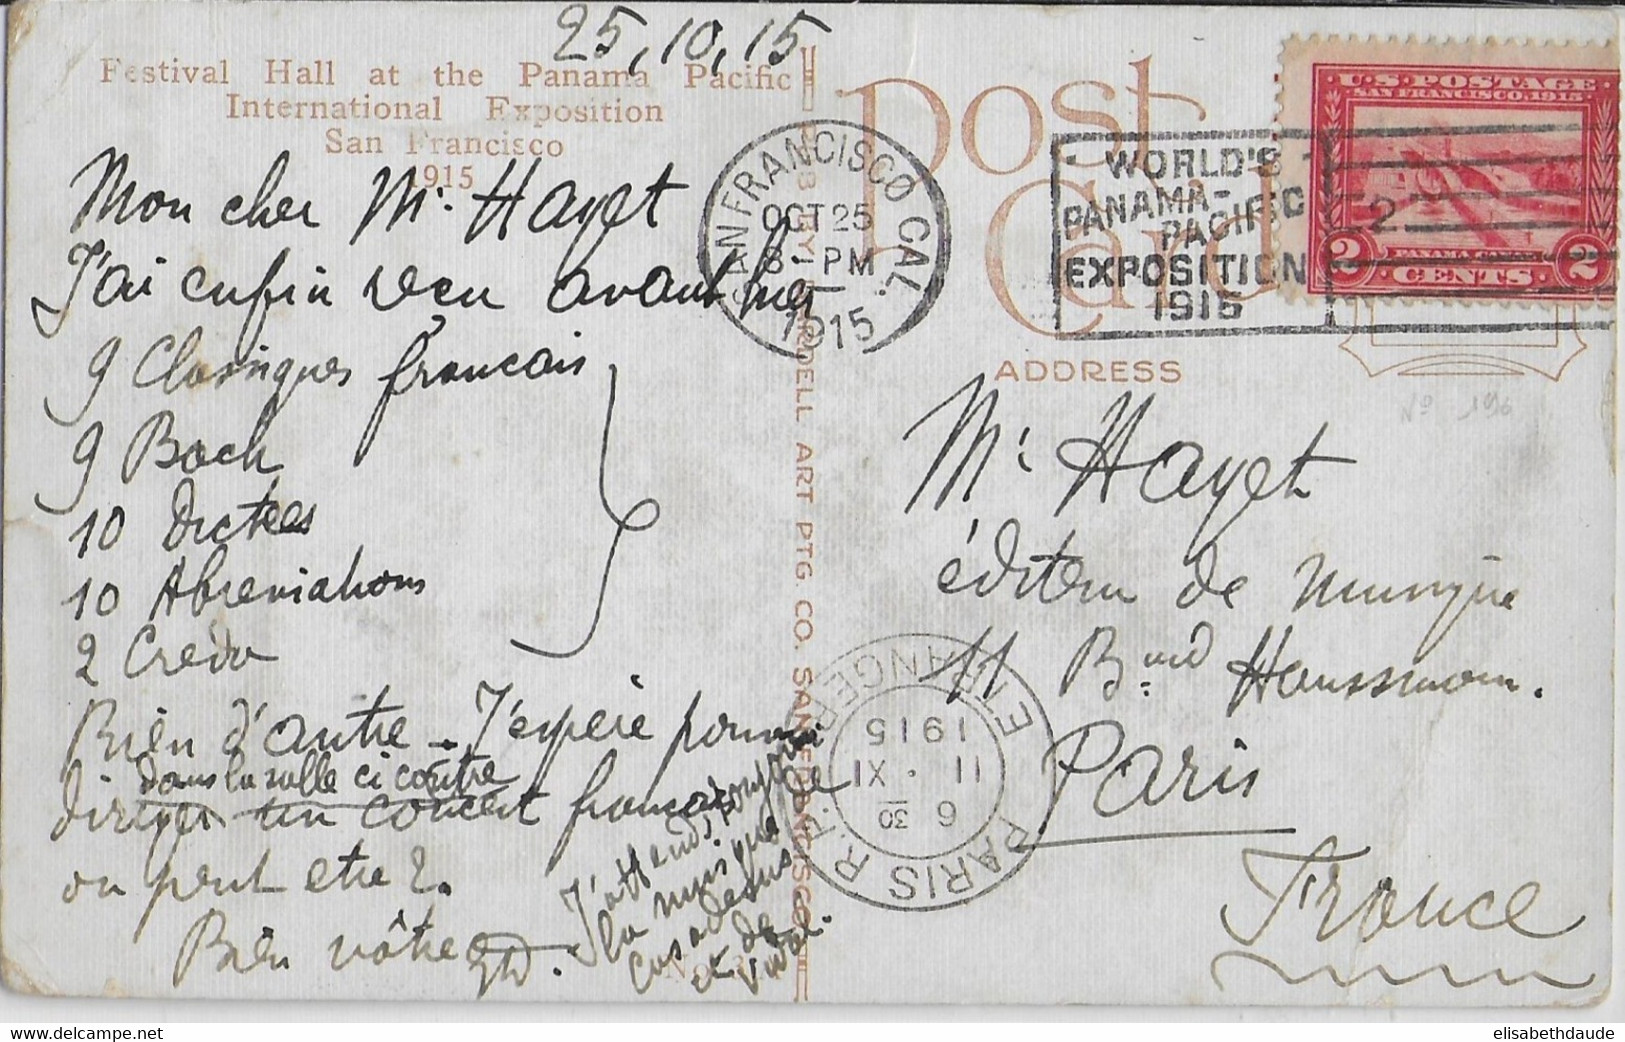 25,10,15
Festival Hall at the Panama Pacific
International Exposition
San Francisco
1915
Mon cher Mr. Hayet
J'ai enfin reçu avant hier
9 Classiques français
9 Bach
10 Dictées
10 Abreviations
2 Credo
Bien d'autre - J'espère pouvoir
dans la salle ci contre
diriger un concert français
ou peut etre 2.
Bien vôtre
J'attends toujours
la musique
Casadesus
et de
Vidal.
PUB BY CARDELL ART PTG. CO. SAN FRANCISCO
SAN FRANCISCO CAL.
OCT 25
8 - PM
1915
Post
Card
WORLD'S
PANAMA-
PACIFIC
EXPOSITION
1915
2
U.S. POSTAGE
SAN FRANCISCO, 1915
2 PANAMA CANAL 2
CENTS
ADDRESS
No 196
Mr Hayet
éditeur de musique
11 Bard Haussmann.
Paris
France
PARIS R.P. ETRANGER
6 30
11 . XI
1915
elisabethdaude